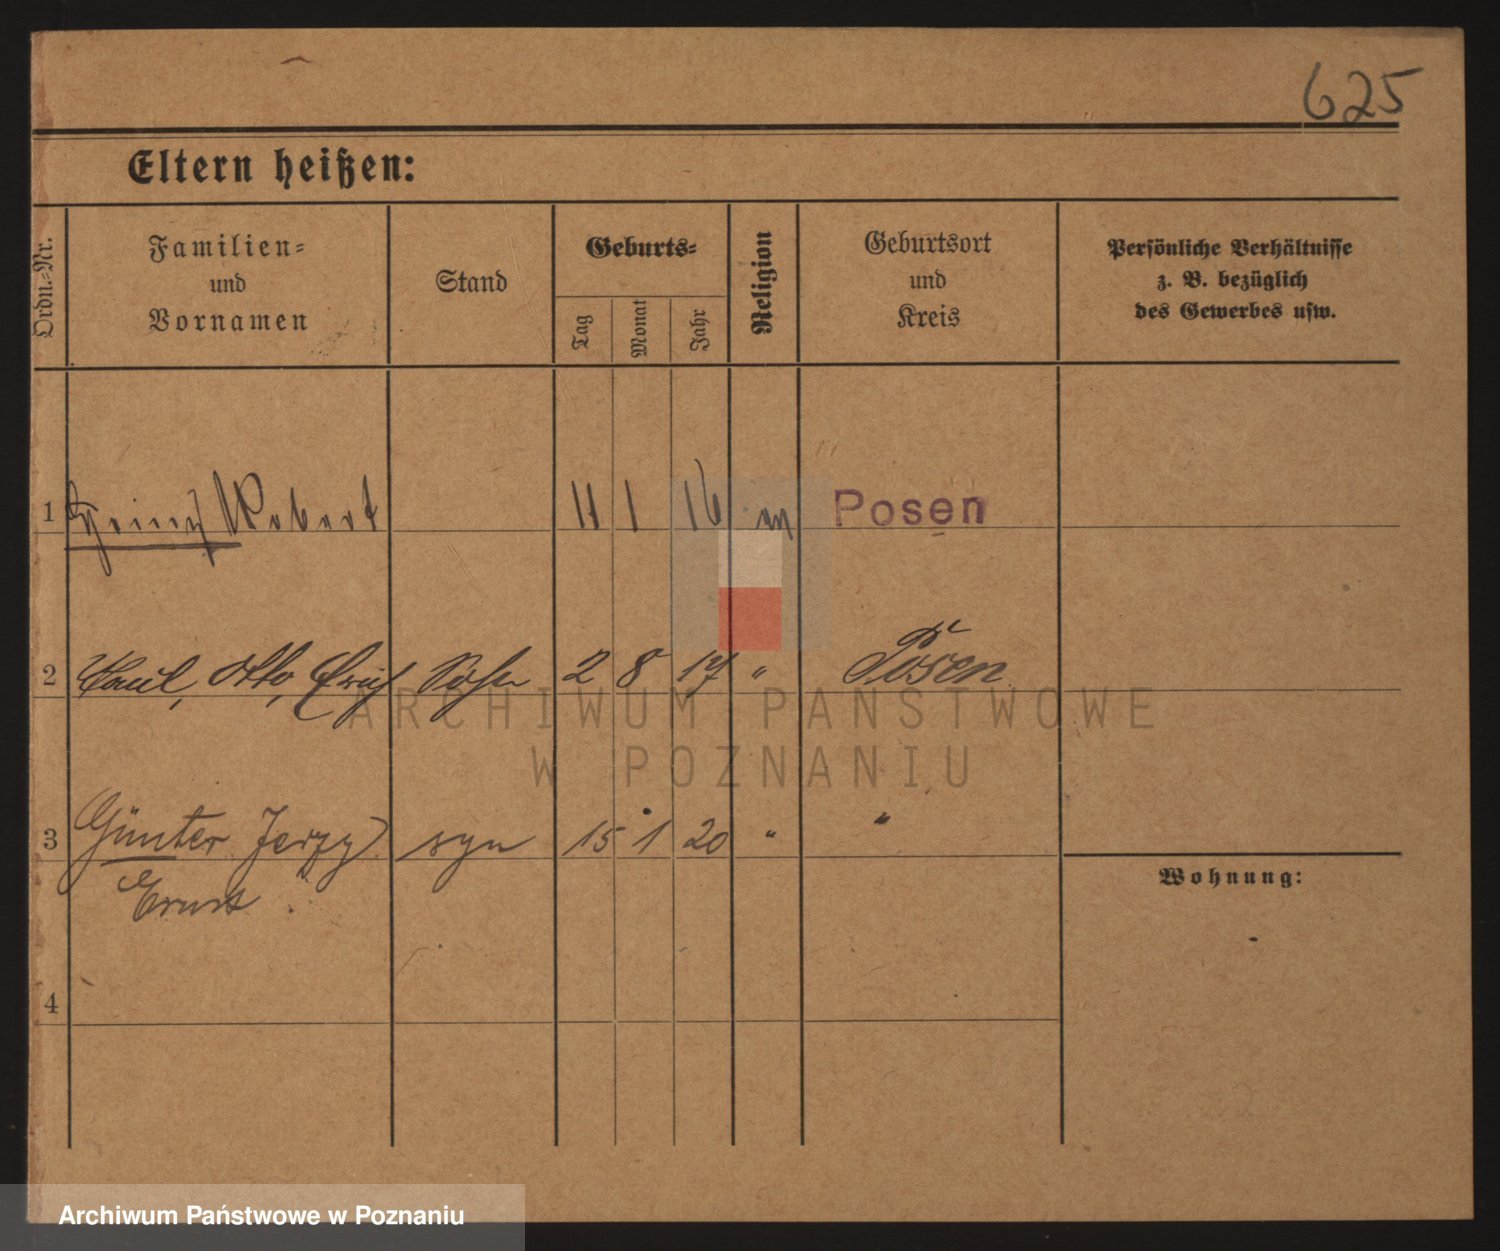 625
Eltern heißen:
Ordn.-Nr.
Familien-
und
Vornamen
Stand
Geburts-
Tag
Monat
Jahr
Religion
Geburtsort
und
Kreis
Persönliche Verhältnisse
z. B. bezüglich
des Gewerbes usw.
1 Heinz Robert 11 1 16 Posen
2 Paul, Otto, Erich Sohn 2 8 17 " Posen
3 Günter Jerzy syn 15 1 20 " "
Ernst
Wohnung:
4
ARCHIWUM PAŃSTWOWE
W POZNANIU
Archiwum Państwowe w Poznaniu